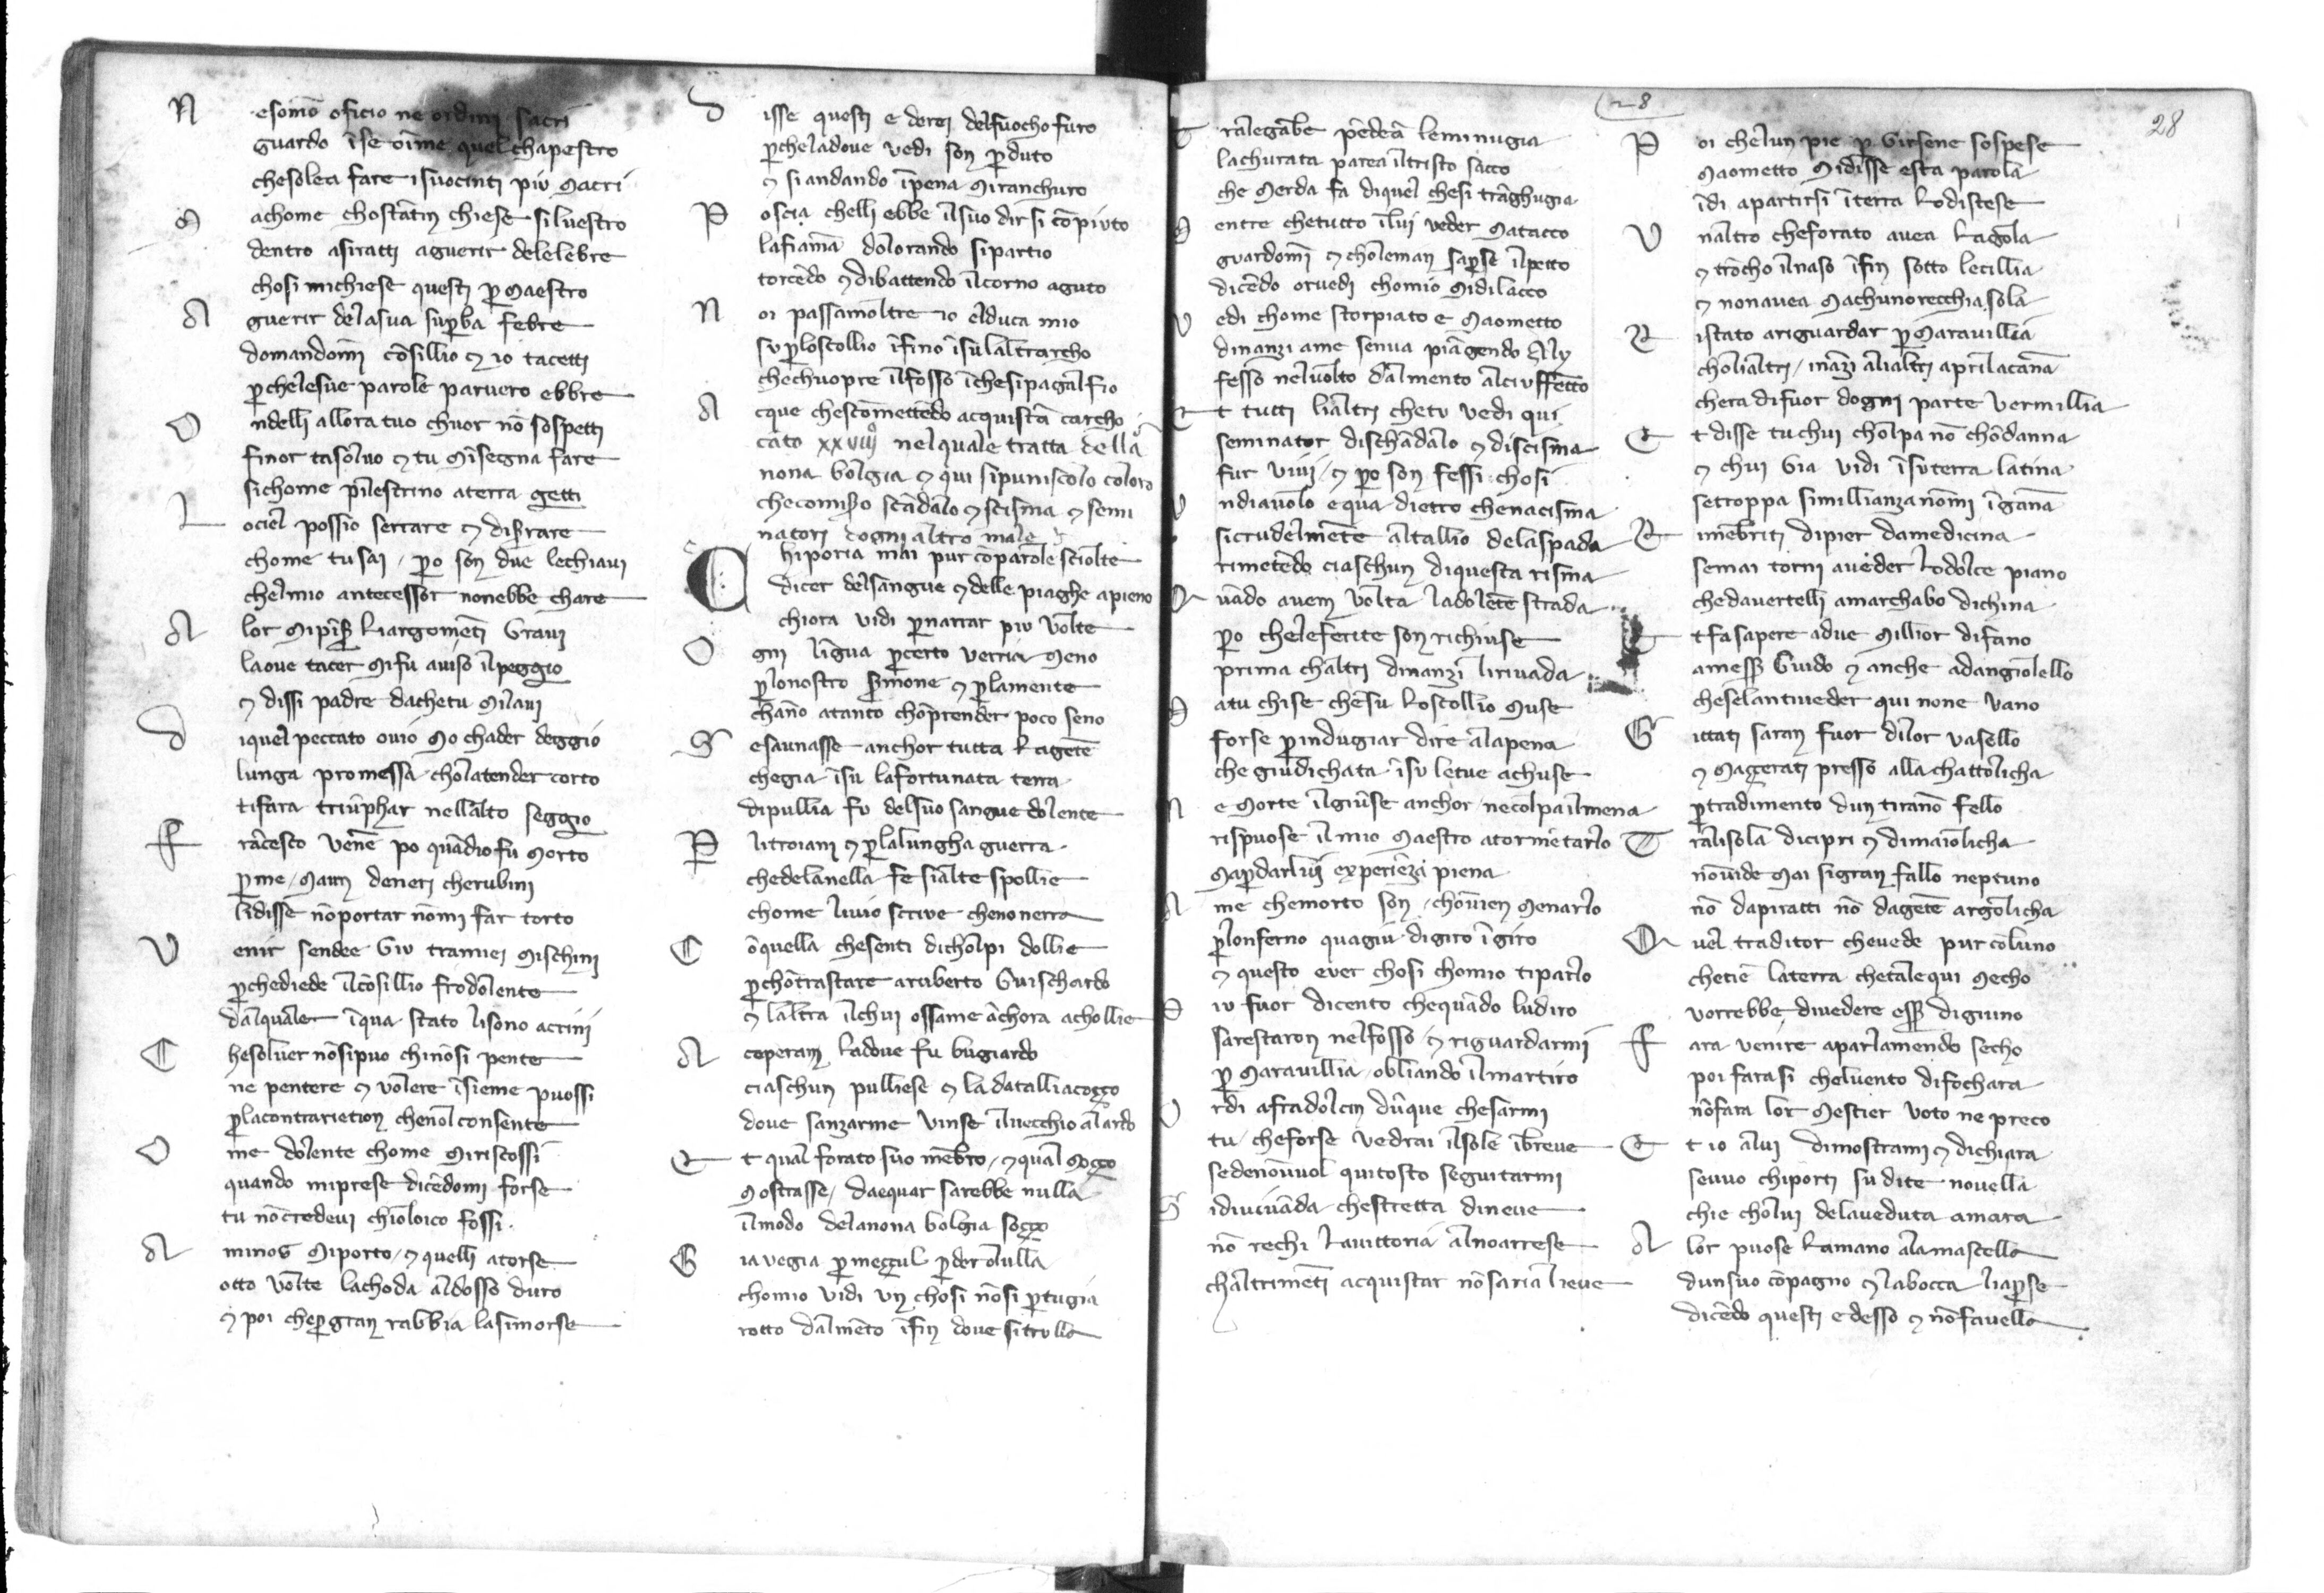 N esōmo oficio ne ordini sacri
guardo ī se o ī me quel chapestro
che solea fare i suo cinti piu macri
M a chome chostātin chiese siluestro
dentro asiratti a guerir dele lebre
chosi mi chiese questi ꝑ maestro
A guerir dela sua suꝑba febre
domandomi cōsillio ⁊ io tacetti
ꝑche le sue parole paruero ebbre
O ndelli allora tuo chuor nō sospetti
finor tasoluo ⁊ tu m īsegna fare
si chome pīlestrino a terra getti
L o ciel possio serrare ⁊ disrare
chome tu sai / ꝑo son due le chiaui
chel mio antecessor non ebbe chare
A lor mi pīser li argomēti graui
la oue tacer mi fu auiso il peggio
⁊ dissi padre da che tu mi laui
D i quel peccato ouio mo chader deggio
lunga promessa chol atender corto
ti fara triūphar nell alto seggio
F rācesco venne po quādio fu morto
ꝑ me / ma un de neri cherubini
li disse nō portar nō mi far torto
V enir sen dee giu tra miei mischini
ꝑche diede il cōsillio frodolente
dal quale ī qua stato li sono a crini
C he soluer nō si puo chi nō si pente
ne pentere ⁊ volere īsieme puossi
ꝑ la contrarietion che nol consente
O me dolente chome mi riscossi
quando mi prese dicēdomi forse
tu nō credeui chio loico fossi
A minos mi porto / ⁊ quelli atorse
otto volte la choda al dosso duro
⁊ poi che ꝑ gran rabbia la si morse
D isse questi e de rei del fuocho furo
ꝑche la doue vedi son ꝑduto
⁊ si andando īpena mi ranchuro
P oscia chelli ebbe il suo dir si cōpiuto
la fiamā dolorando si partio
torcēdo ⁊ dibattendo il corno aguto
N oi passamoltre io el duca mio
su ꝑ lo scollio īfino ī su laltrarcho
che chuopre il fosso ī che si paga il fio
A cque che scōmettēdo acquistā carcho
cāto xxviij nel quale tratta della
nona bolgia ⁊ qui si puniscolo coloro
che comiso scādalo ⁊ scisma ⁊ semi
natori dogni altro male
C hi poria mai pur cō parole sciolte
dicer del sangue ⁊ delle piaghe apieno
chiora vidi ꝑ narrar piu volte
O gni līgua ꝑ certo verria meno
ꝑ lo nostro sermone ⁊ ꝑ la mente
channo a tanto chōprender poco seno
S e saunasse anchor tutta la gēte
che gia ī su la fortunata terra
di pullia fu del suo sangue dolente
P li troiani ⁊ ꝑ la lungha guerra
che de lanella fe si alte spollie
chome liuio scriue che non erra
C ō quella che senti di cholpi dollie
ꝑ chōtrastare a ruberto guischardo
⁊ laltra il chui ossame āchora achollie
A coperan la doue fu bugiardo
ciaschun pulliese ⁊ la da talliacozzo
doue sanzarme vinse il uecchio alardo
E t qual forato suo mēbro / ⁊ qual mozzo
mostrasse / daequar sarebbe nulla
il modo dela nona bolgia sozzo
G ia vegia ꝑ mezzul ꝑder o lulla
chomio vidi vn chosi nō si ꝑtugia
rotto dal mēto īfin doue si trulla
T ra le gābe pēdeā le minugia
la churata parea il tristo sacco
che merda fa di quel che si trāghugia
M entre che tutto ī lui veder matacco
guardomi ⁊ chole man saꝑse il petto
dicēdo or uedi chomio mi dilacco
V edi chome storpiato e maometto
dinanzi a me sen ua piāgendo aly
fesso nel uolto dal mento al ciuffetto
E t tutti li altri che tu vedi qui
seminator di schādalo ⁊ di scisma
fur viui / ⁊ ꝑo son fessi chosi
V n diauolo e qua dietro che nacisma
si crudelmēte al tallio dela spada
rimetēdo ciaschun di questa risma
Q uādo auem volta la dolēte strada
ꝑo che le ferite son richiuse
prima chaltri dinanzi li riuada
M a tu chi se che su lo scollio muse
forse ꝑ indugiar dire ala pena
che giudichata ī su le tue achuse
N e morte il giūse anchor / ne colpa il mena
rispuose il mio maestro a tormētarlo
ma ꝑ dar lui experiēza piena
A me che morto son / chouien menarlo
ꝑ lo nferno qua giu di giro ī giro
⁊ questo e ver chosi chomio ti parlo
P iu fuor di cento che quādo ludiro
sarestaron nel fosso / ⁊ riguardarmi
ꝑ marauillia / obliando il martiro
O r di a fra dolcin dūque che sarmi
tu / che forse vedrai il sole ī breue
se de nō uuol qui tosto seguitarmi
S i di uiuāda che stretta di neue
nō rechi la uittoria al noarrese
chaltrimēti acquistar nō saria lieue
28
28
P oi che lun pie ꝑ girsene sospese
maometto mi disse esta parola
īdi a partirsi ī terra lo distese
U naltro che forato auea la gola
⁊ trōcho il naso īfin sotto le cillia
⁊ non auea ma chuno recchia sola
R istato a riguardar ꝑ marauillia
cho li altri /ināzi a li altri apri la cāna
chera di fuor dogni parte vermillia
E t disse tu chui cholpa nō chōdanna
⁊ chui gia vidi ī su terra latina
se troppa simillianza nō mi īgana
R imēbriti di pier da medicina
se mai torni a ueder lo dolce piano
che da vertelli a marchabo dichina
E t fa sapere a due millior di fano
a messer guido ⁊ anche ad angiolello
che se lantiueder qui none vano
G ittati saran fuor di lor vasello
⁊ mazerati presso alla chattolicha
ꝑ tradimento dun tiranno fello
T ra lisola di cipri ⁊ di maiolicha
nō uide mai si gran fallo neptuno
nō da piratti nō da gēte argolicha
Q uel traditor che uede pur coluno
che tiē la terra che tale qui mecho
vorrebbe di uedere esser digiuno
F ara venire a parlamendo secho
poi fara si chel uento di fochara
nō fara lor mestier voto ne preco
E t io a lui dimostrami ⁊ dichiara
se uuo chi porti su di te nouella
chi e cholui dela ueduta amara
A lor puose la mano ala mascella
dun suo cōpagno ⁊ la bocca li aꝑse
dicēdo questi e desso ⁊ nō fauella